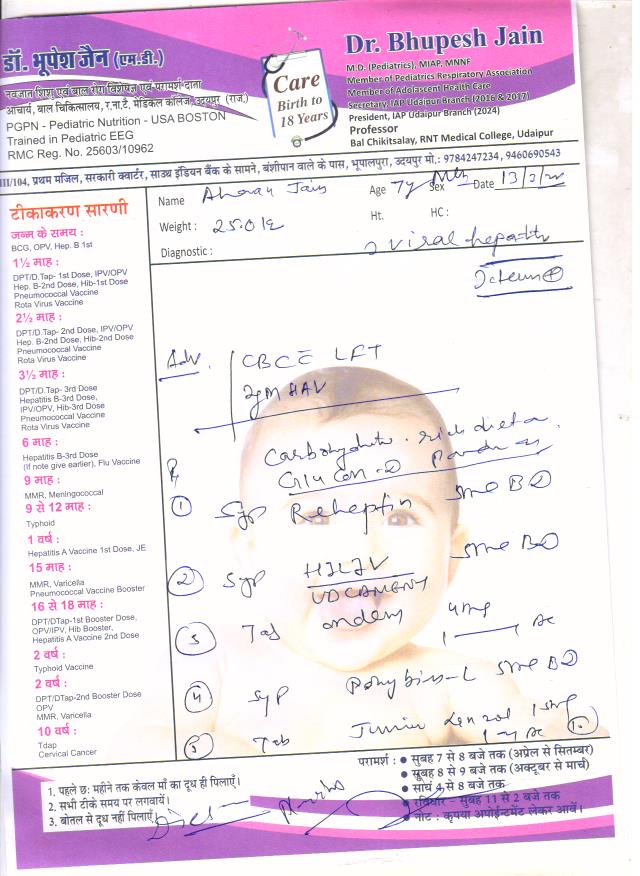 डॉ. भूपेश जैन (एम.डी.)
नवजात शिशु एवं बाल रोग विशेषज्ञ एवं परामर्श दाता
आचार्य, बाल चिकित्सालय, र.ना.टै. मेडिकल कॉलेज, उदयपुर (राज.)
PGPN - Pediatric Nutrition - USA BOSTON
Trained in Pediatric EEG
RMC Reg. No. 25603/10962
Care
Birth to
18 Years
Dr. Bhupesh Jain
M.D. (Pediatrics), MIAP, MNNF
Member of Pediatrics Respiratory Association
Member of Adolescent Health Care
Secretary IAP Udaipur Branch (2016 & 2017)
President, IAP Udaipur Branch (2024)
Professor
Bal Chikitsalay, RNT Medical College, Udaipur
III/104, प्रथम मंजिल, सरकारी क्वार्टर, साउथ इंडियन बैंक के सामने, बंशीपान वाले के पास, भूपालपुरा, उदयपुर मो.: 9784247234, 9460690543
Name Jain Age 7y Sex Date 13/3/
Weight : 25.0 Ht. HC :
Diagnostic : viral hepatitis
Icterus +
Adv. CBC LFT
IgM HAV
Carbohydrate rich diet
Glucon-D Powder
1 Syp 5ml BD
2 Syp 5ml BD
UDCAMENT
3 Tab ondem 4mg
4 Syp 5ml BD
5 Tab Junior Lanzol 15mg
टीकाकरण सारणी
जन्म के समय :
BCG, OPV, Hep. B 1st
1½ माह :
DPT/D.Tap- 1st Dose, IPV/OPV
Hep. B-2nd Dose, Hib-1st Dose
Pneumococcal Vaccine
Rota Virus Vaccine
2½ माह :
DPT/D.Tap- 2nd Dose, IPV/OPV
Hep. B-2nd Dose, Hib-2nd Dose
Pneumococcal Vaccine
Rota Virus Vaccine
3½ माह :
DPT/D.Tap- 3rd Dose
Hepatitis B-3rd Dose,
IPV/OPV, Hib-3rd Dose
Pneumococcal Vaccine
Rota Virus Vaccine
6 माह :
Hepatitis B-3rd Dose
(If note give earlier), Flu Vaccine
9 माह :
MMR, Meningococcal
9 से 12 माह :
Typhoid
1 वर्ष :
Hepatitis A Vaccine 1st Dose, JE
15 माह :
MMR, Varicella
Pneumococcal Vaccine Booster
16 से 18 माह :
DPT/DTap-1st Booster Dose,
OPV/IPV, Hib Booster,
Hepatitis A Vaccine 2nd Dose
2 वर्ष :
Typhoid Vaccine
2 वर्ष :
DPT/DTap-2nd Booster Dose
OPV
MMR, Varicella
10 वर्ष :
Tdap
Cervical Cancer
1. पहले छ: महीने तक केवल माँ का दूध ही पिलाएँ।
2. सभी टीके समय पर लगवायें।
3. बोतल से दूध नहीं पिलाएँ
परामर्श : • सुबह 7 से 8 बजे तक (अप्रेल से सितम्बर)
• सुबह 8 से 9 बजे तक (अक्टूबर से मार्च)
• सायं 4 से 8 बजे तक
• रविवार - सुबह 11 से 2 बजे तक
• नोट : कृपया अपोईन्टमेंट लेकर आवें।